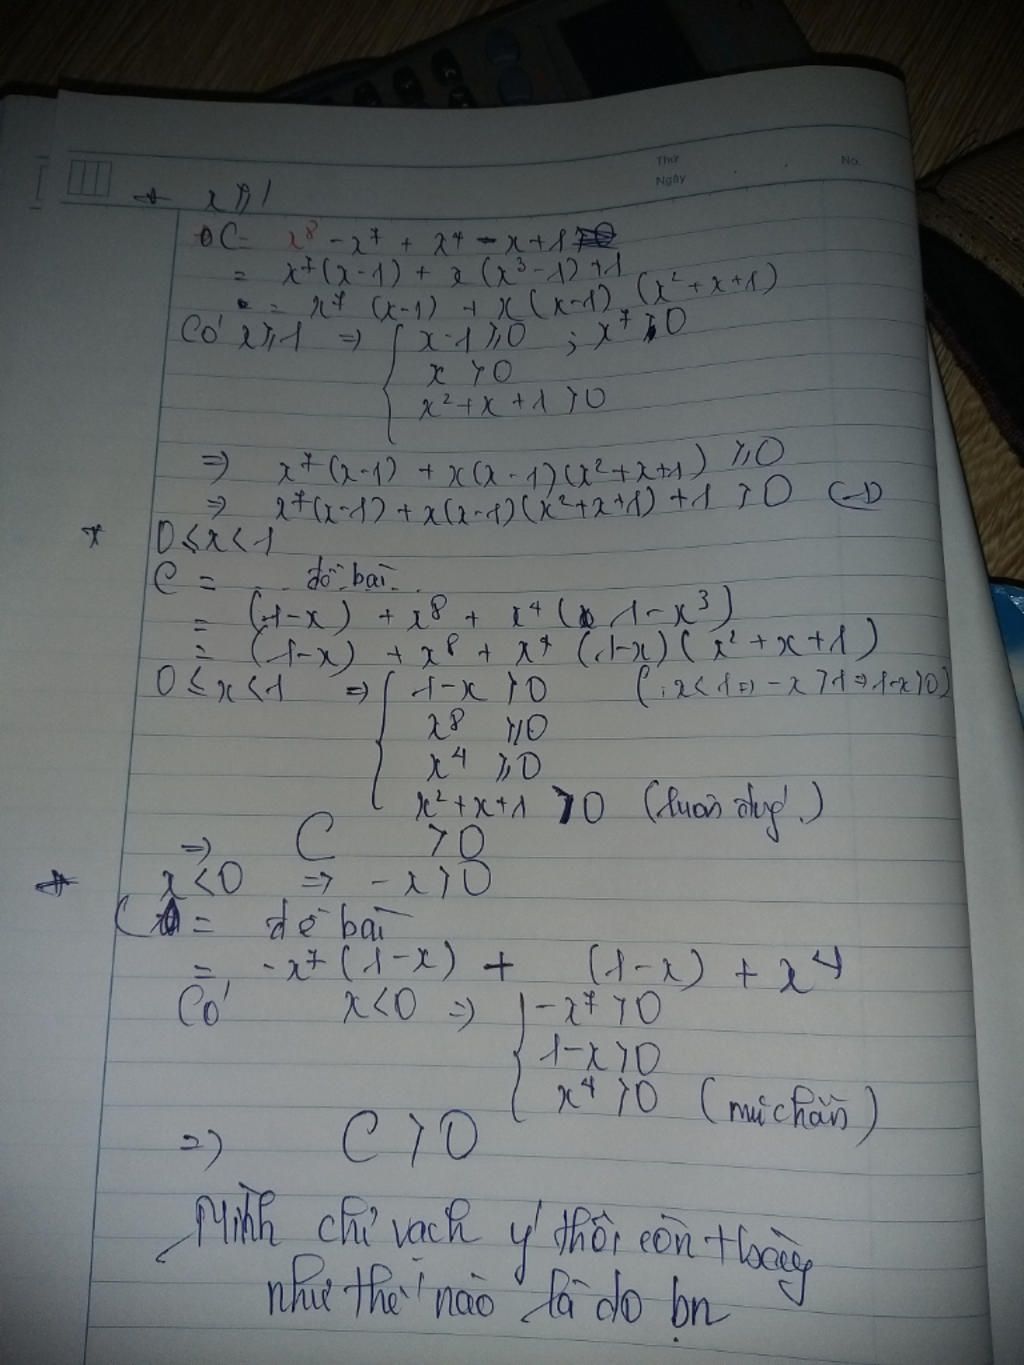 Thứ
No.
Ngày
+ x ≥ 1
C = x⁸ - x⁷ + x⁴ - x + 1
= x⁷(x-1) + x(x³-1) + 1
= x⁷(x-1) + x(x-1)(x²+x+1)
Có x ≥ 1 ⇒ { x-1 ≥ 0 ; x⁷ > 0
x > 0
x² + x + 1 > 0
⇒ x⁷(x-1) + x(x-1)(x²+x+1) ≥ 0
⇒ x⁷(x-1) + x(x-1)(x²+x+1) + 1 > 0
* 0 ≤ x < 1
C = đề bài
= (1-x) + x⁸ + x⁴(1-x³)
= (1-x) + x⁸ + x⁴(1-x)(x²+x+1)
0 ≤ x < 1 ⇒ { 1-x > 0 (x < 1 ⇒ -x > 1 ⇒ 1-x > 0)
x⁸ ≥ 0
x⁴ ≥ 0
x² + x + 1 > 0 (luôn
⇒ C > 0
* x < 0 ⇒ -x > 0
C = đề bài
= -x⁷(1-x) + (1-x) + x⁴
Có x < 0 ⇒ { -x⁷ > 0
1-x > 0
x⁴ > 0 (mũ chẵn)
⇒ C > 0
Mình chỉ vạch ý thôi còn
như thế nào là do bn